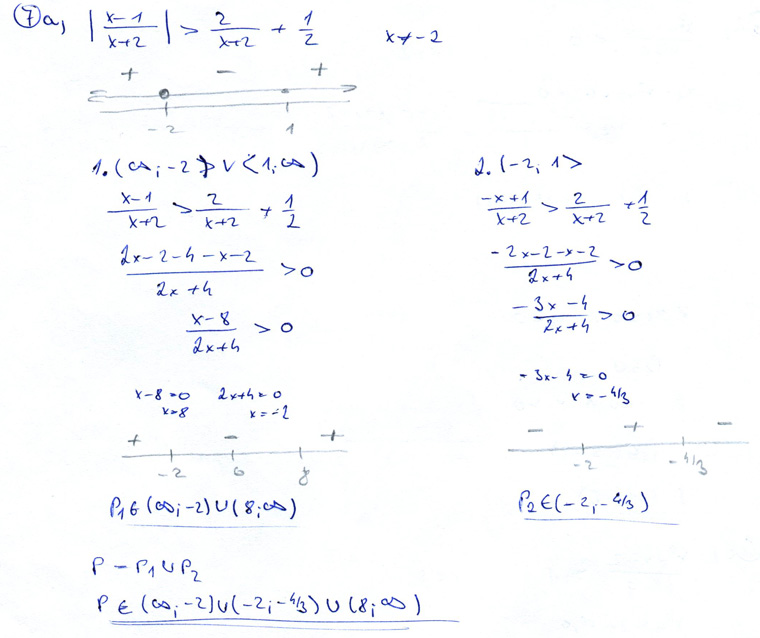 ⑦a, |x-1/x+2| > 2/x+2 + 1/2 x ≠ -2
+ - +
-2 1
1. (∞; -2) ∪ <1; ∞)
x-1/x+2 > 2/x+2 + 1/2
2x-2-4-x-2/2x+4 > 0
x-8/2x+4 > 0
x-8=0 2x+4=0
x=8 x=-2
+ - +
-2 6 8
P₁∈(∞;-2)∪(8;∞)
2. (-2; 1>
-x+1/x+2 > 2/x+2 + 1/2
-2x-2-x-2/2x+4 > 0
-3x-4/2x+4 > 0
-3x-4=0
x=-4/3
- + -
-2 -4/3
P₂∈(-2;-4/3)
P - P₁∪P₂
P∈(∞;-2)∪(-2;-4/3)∪(8;∞)